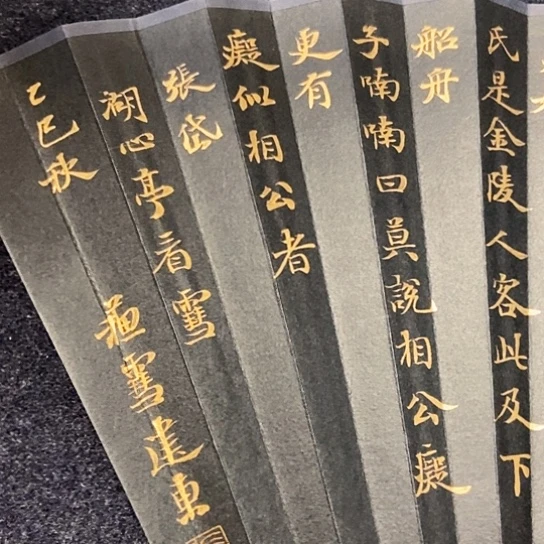 氏是金陵人客此及下
船舟
子喃喃曰莫說相公癡
更有
癡似相公者
張岱
湖心亭看雪
乙巳秋
雪建東